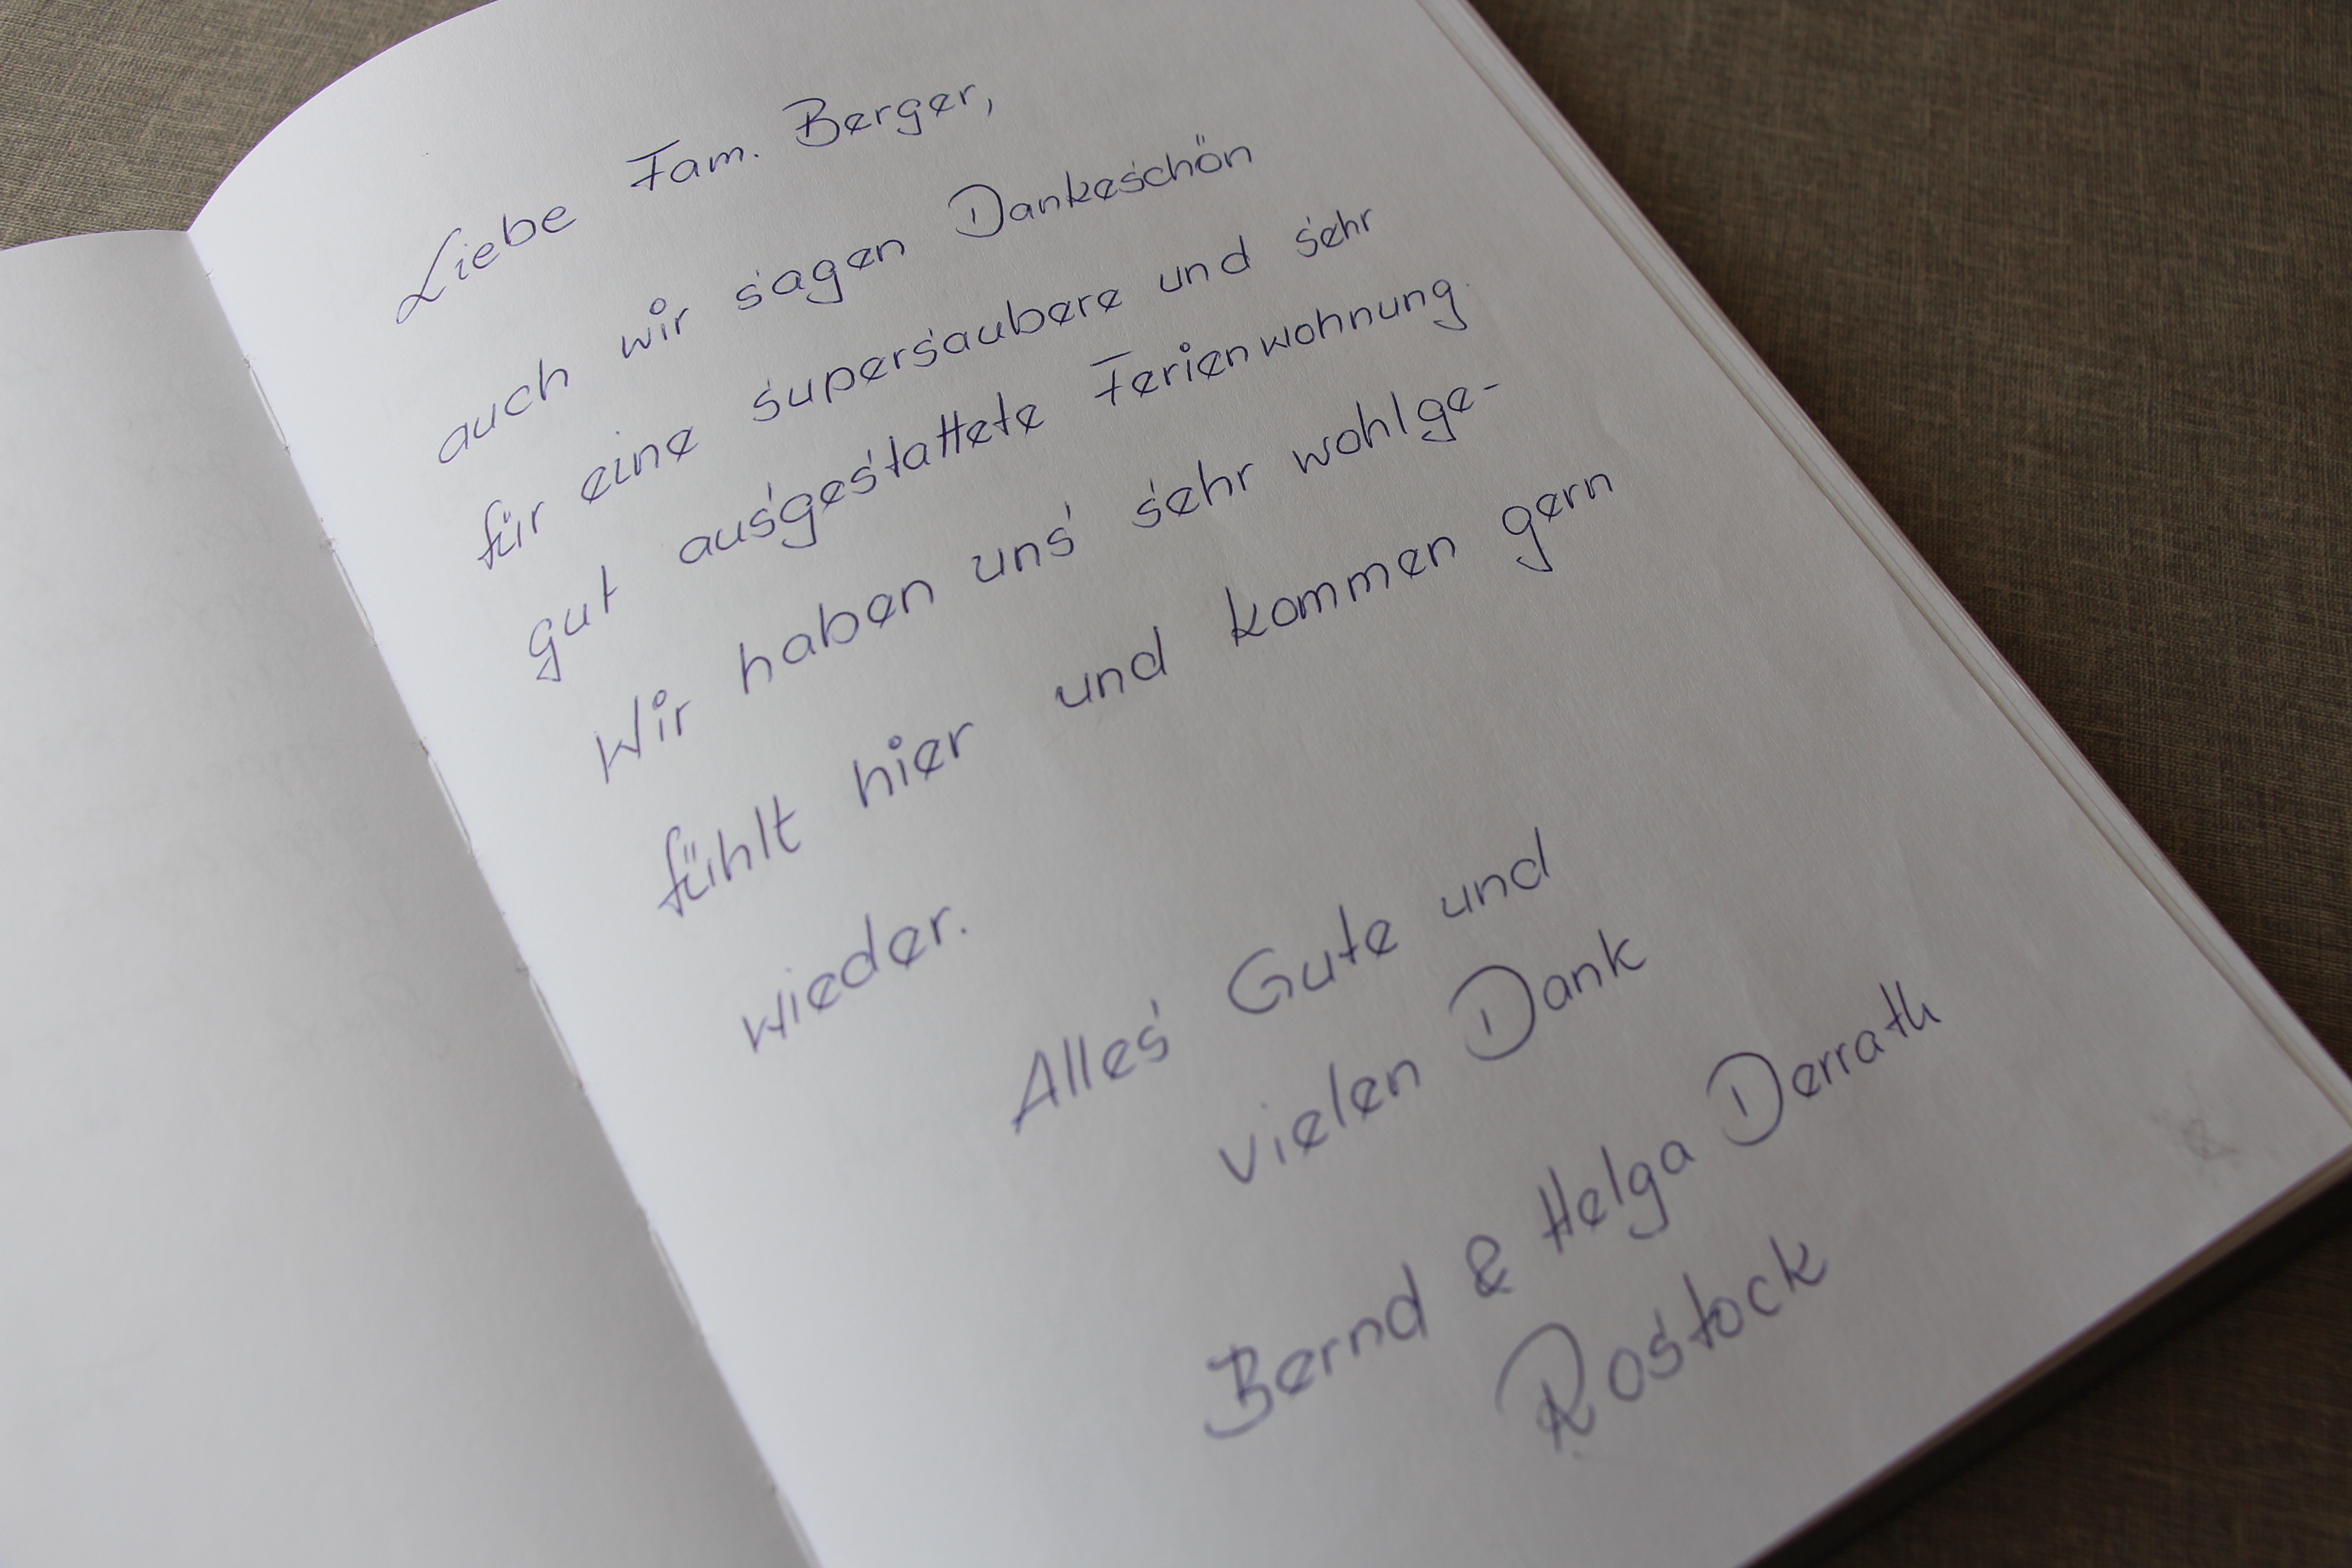 Liebe Fam. Berger,
auch wir sagen Dankeschön
für eine supersaubere und sehr
gut ausgestattete Ferienwohnung.
Wir haben uns sehr wohlge-
fühlt hier und kommen gern
wieder.
Alles Gute und
vielen Dank
Bernd & Helga Derrath
Rostock